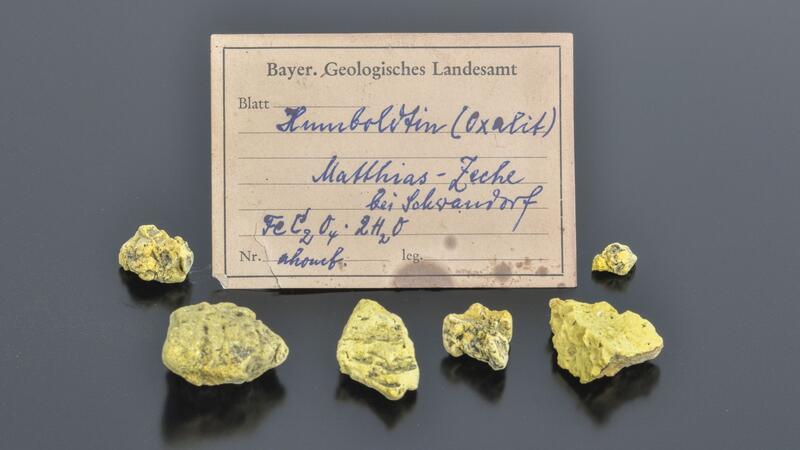 Bayer. Geologisches Landesamt
Blatt Humboldtin (Oxalit)
Matthias-Zeche
bei Schwandorf
FeC₂O₄·2H₂O
Nr. rhomb. leg.